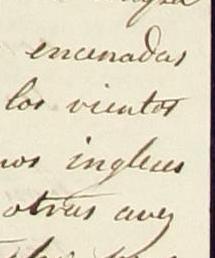 encenadas
los vientos
nos ingleces
otras avez